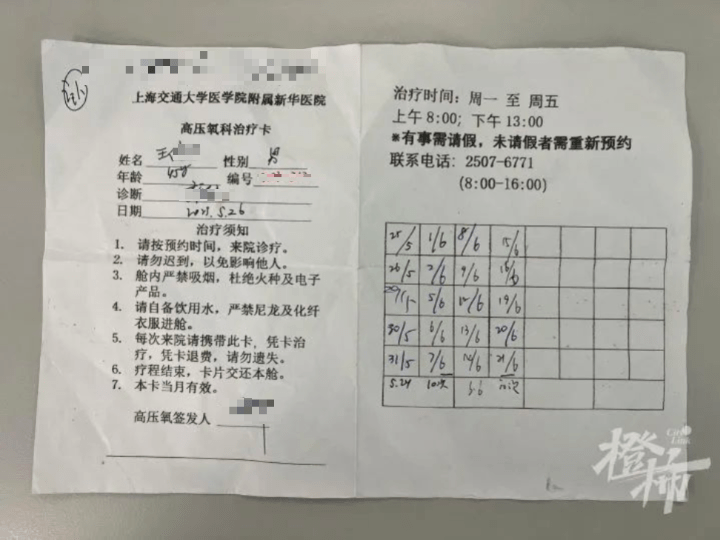 上海交通大学医学院附属新华医院
高压氧科治疗卡
姓名 王 性别 男
年龄 45岁 编号
诊断
日期 5.26
治疗须知
1. 请按预约时间，来院诊疗。
2. 请勿迟到，以免影响他人。
3. 舱内严禁吸烟，杜绝火种及电子
产品。
4. 请自备饮用水，严禁尼龙及化纤
衣服进舱。
5. 每次来院请携带此卡，凭卡治
疗，凭卡退费，请勿遗失。
6. 疗程结束，卡片交还本舱。
7. 本卡当月有效。
高压氧签发人
治疗时间：周一 至 周五
上午 8:00；下午 13:00
*有事需请假，未请假者需重新预约
联系电话：2507-6771
(8:00-16:00)
25/5 1/6 8/6 15/6
26/5 2/6 9/6 16/6
5/6 12/6 19/6
30/5 6/6 13/6 20/6
31/5 7/6 14/6 21/6
5.24 10次 6.6 10次
橙柿
City Link